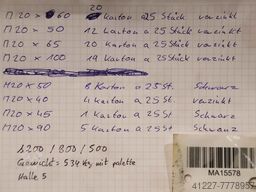 20
M20 x 60 Karton a 25 Stück verzinkt
M20 x 50 12 Karton a 25 Stück verzinkt
M20 x 65 20 Karton a 25 Stück verzinkt
M20 x 100 19 Karton a 25 Stück verzinkt
M20 x 50 8 Karton a 25 St. Schwarz
M20 x 40 4 Karton a 25 St. verzinkt
M20 x 45 1 Karton a 25 St. Schwarz
M20 x 90 5 Karton a 25 St. Schwarz
1200 / 800 / 500
Gewicht = 534 kg mit palette
Halle 5
MA15578
41227-7778957